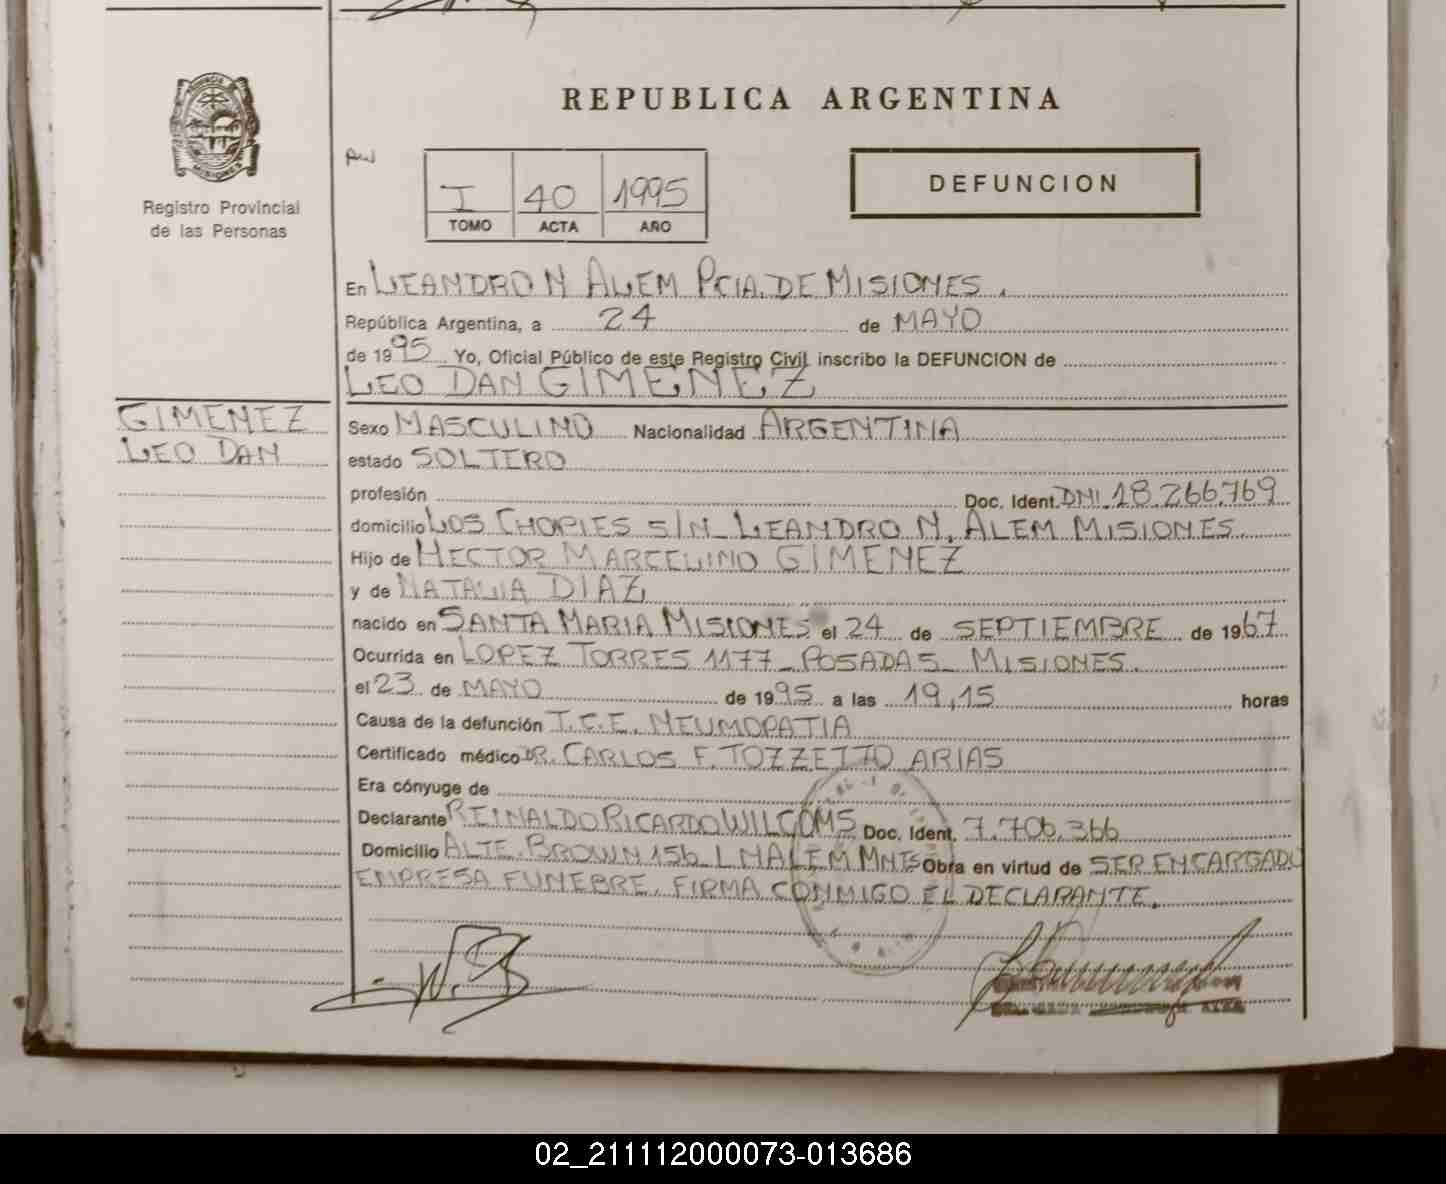 REPUBLICA ARGENTINA
PROVINCIA DE
MISIONES
Registro Provincial
de las Personas
I 40 1995
TOMO ACTA AÑO
DEFUNCION
En LEANDRO N ALEM PCIA. DE MISIONES.
República Argentina, a 24 de MAYO
de 1995 Yo, Oficial Público de este Registro Civil inscribo la DEFUNCION de
LEO DAN GIMENEZ
GIMENEZ
LEO DAN
Sexo MASCULINO Nacionalidad ARGENTINA
estado SOLTERO
profesión Doc. Ident. DNI. 18.266.769
domicilio LOS CHOPIES S/N_ LEANDRO N. ALEM MISIONES.
Hijo de HECTOR MARCELINO GIMENEZ
y de NATALIA DIAZ
nacido en SANTA MARIA MISIONES el 24 de SEPTIEMBRE de 1967
Ocurrida en LOPEZ TORRES 1177_ POSADAS_ MISIONES.
el 23 de MAYO de 1995 a las 19,15 horas
Causa de la defunción I.C.E. NEUMOPATIA
Certificado médico DR. CARLOS F. TOZZETTO ARIAS
Era cónyuge de
Declarante REINALDO RICARDO WILCOMS Doc. Ident. 7.706.366
Domicilio ALTE. BROWN 156_ L N ALEM MNES Obra en virtud de SER ENCARGADO
EMPRESA FUNEBRE. FIRMA CONMIGO EL DECLARANTE.
02_211112000073-013686